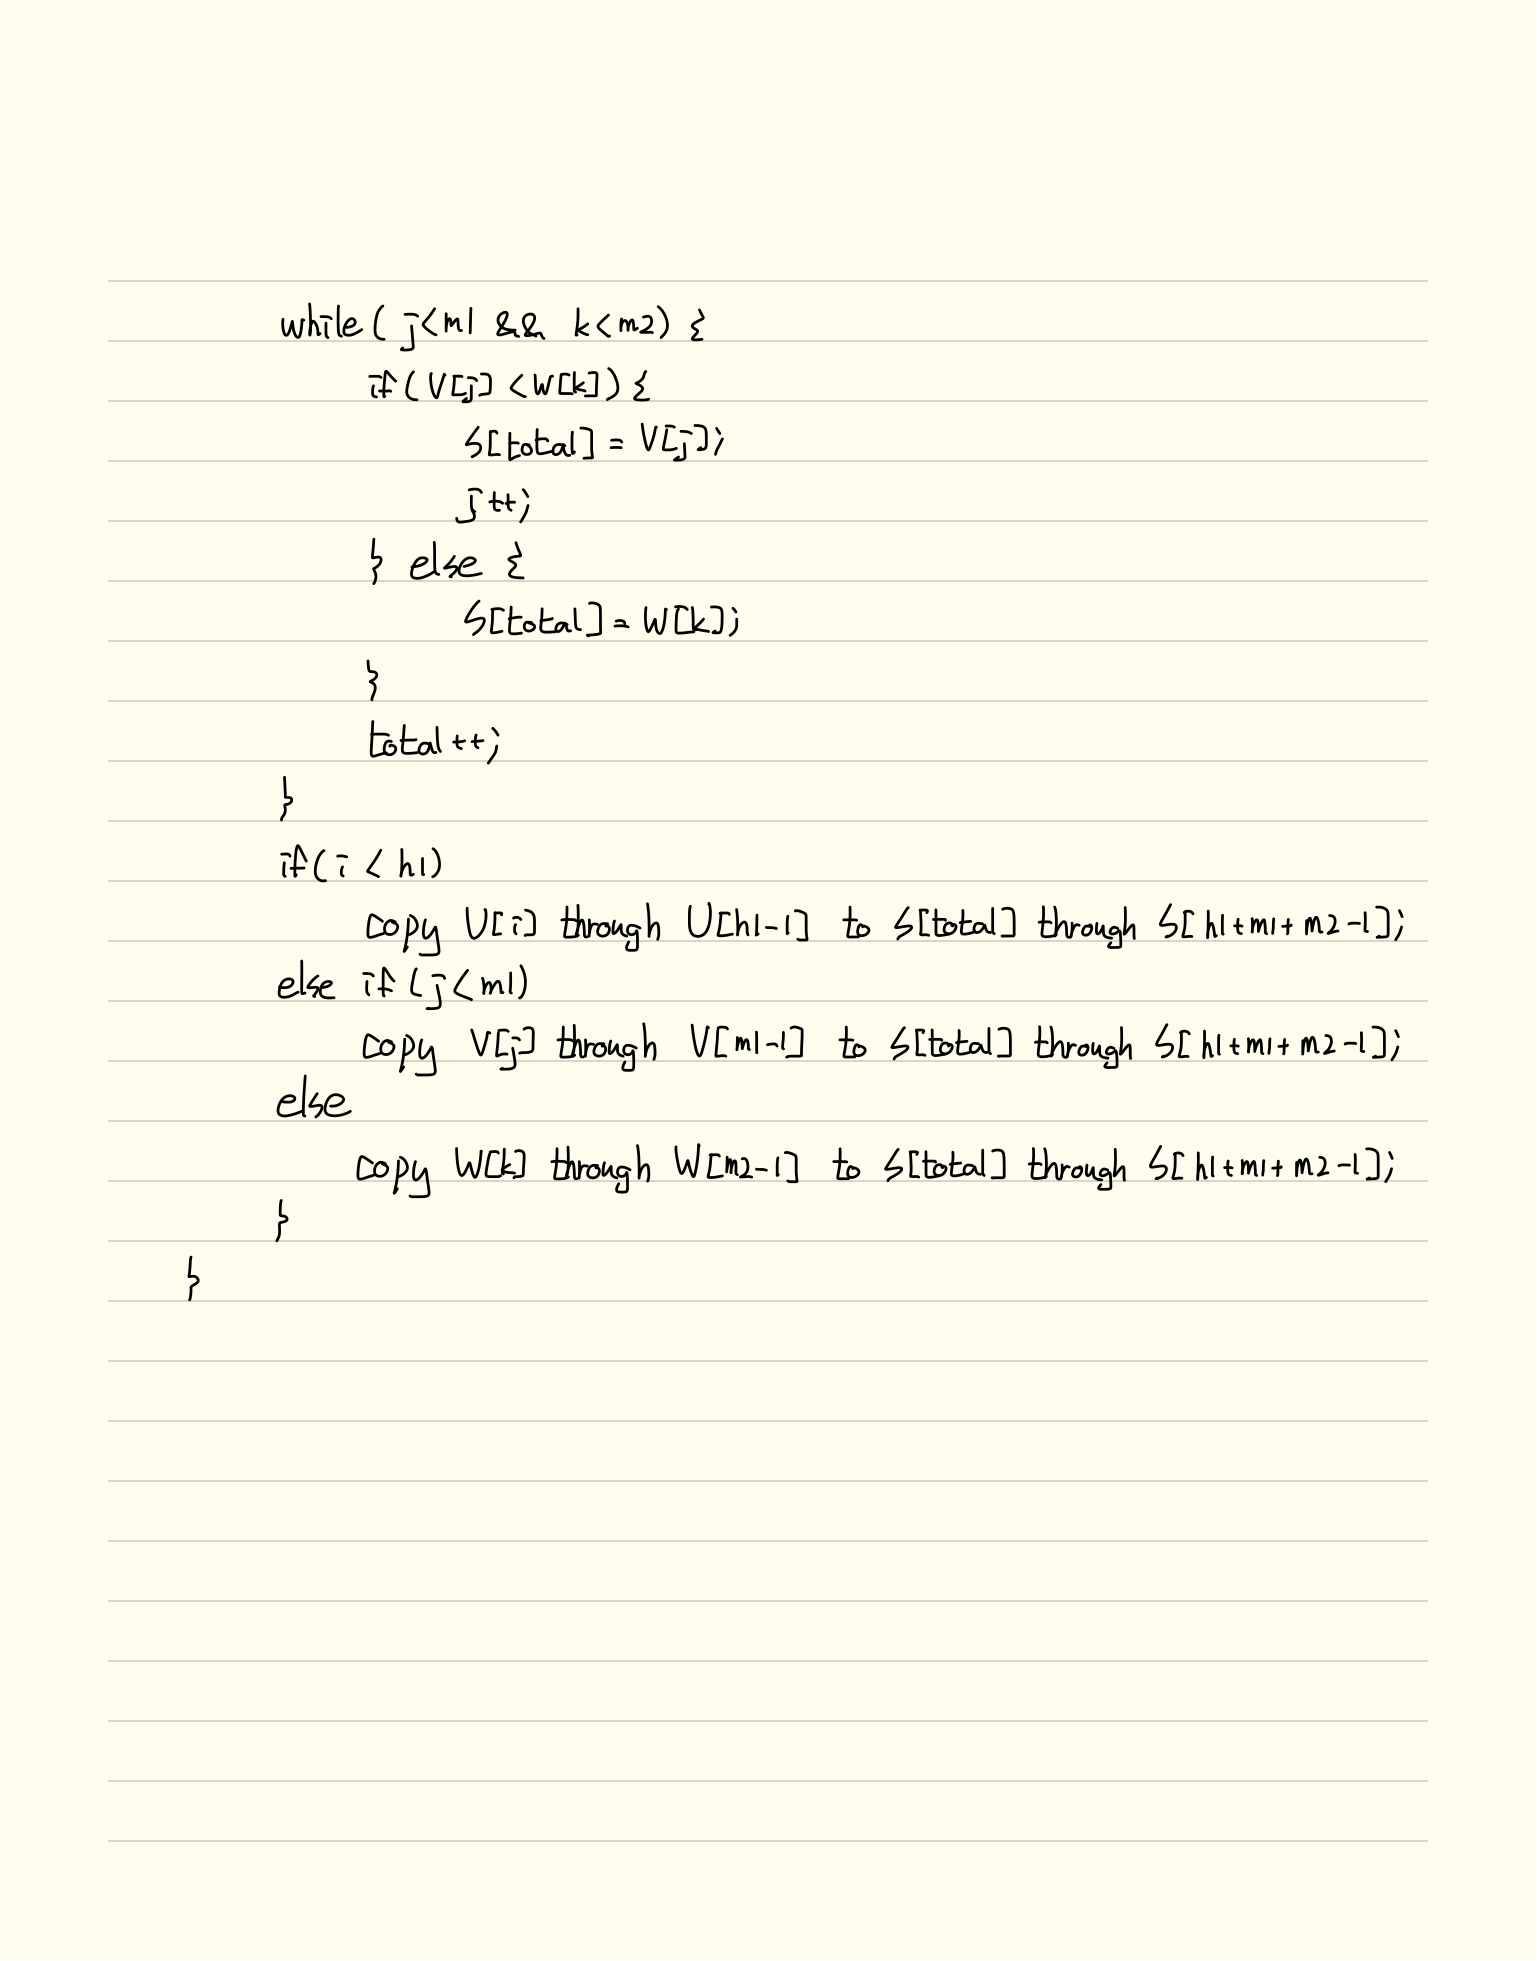 while (j<m1 && k<m2) {
if(V[j] <W[k]) {
S[total] = V[j];
j++;
} else {
S[total] = W[k];
}
total++;
}
if(i < h1)
copy U[i] through U[h1-1] to S[total] through S[h1+m1+m2-1];
else if (j<m1)
copy V[j] through V[m1-1] to S[total] through S[h1+m1+m2-1];
else
copy W[k] through W[m2-1] to S[total] through S[h1+m1+m2-1];
}
}